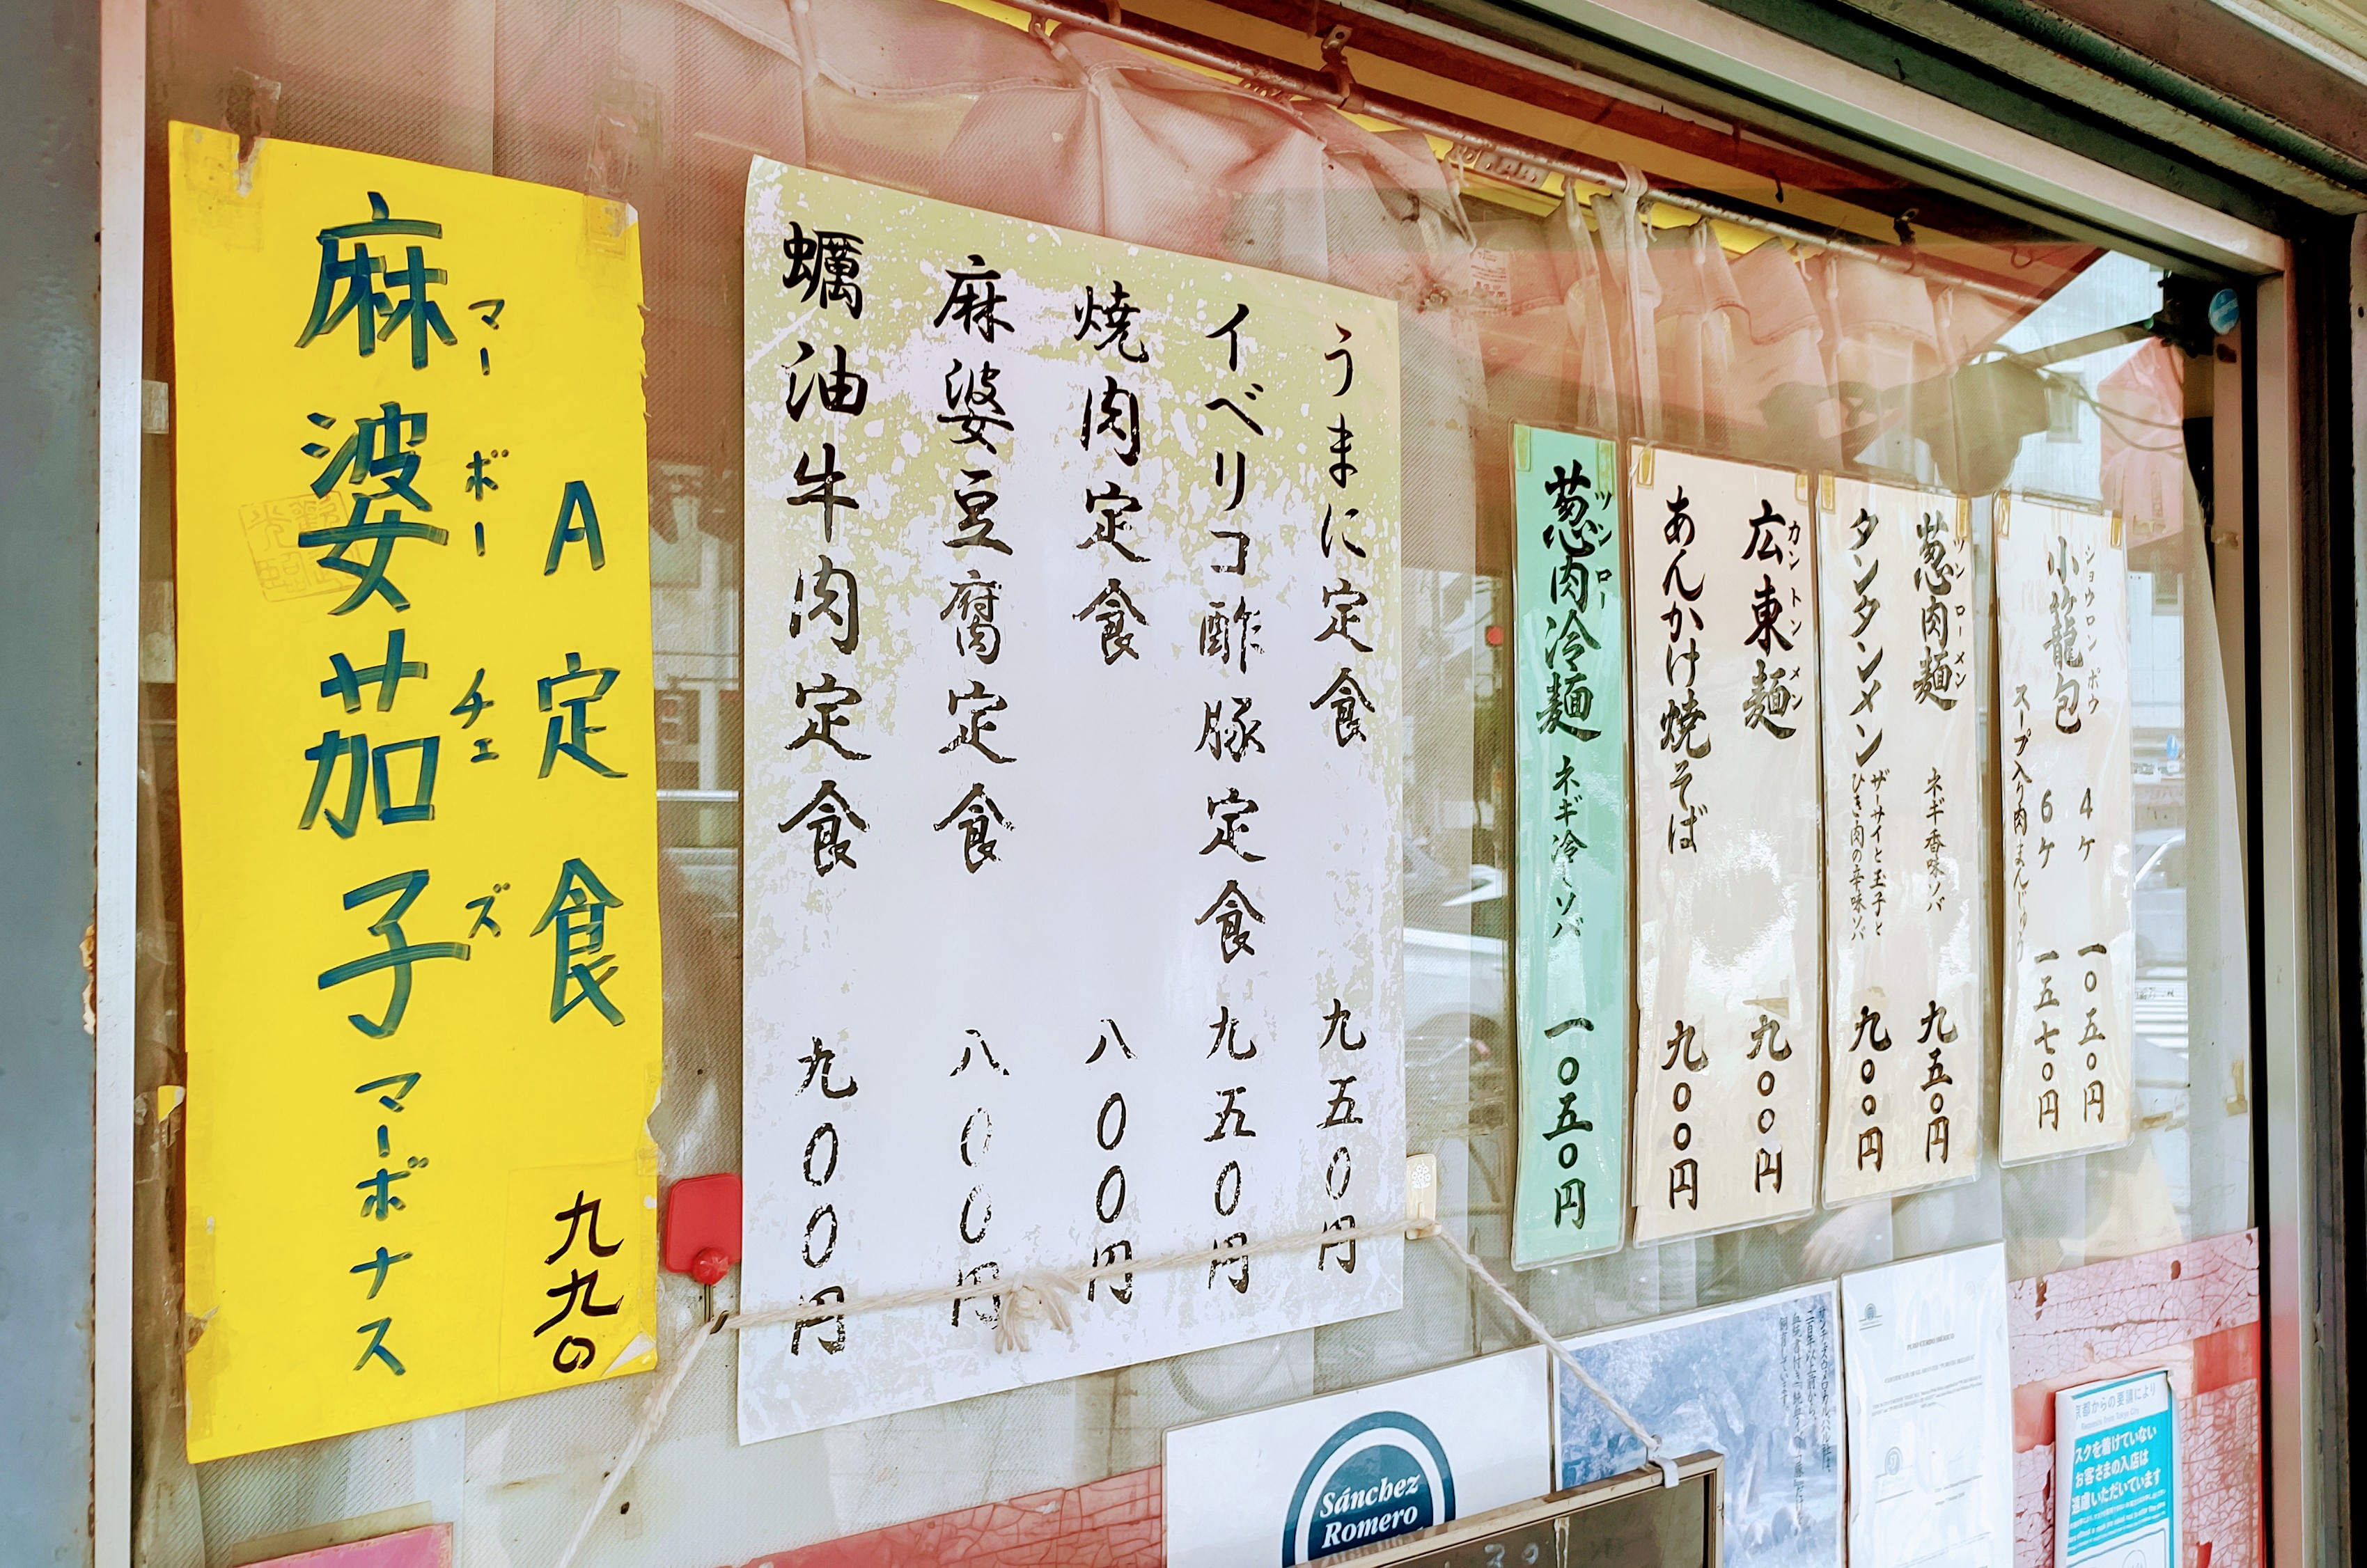 A定食
麻婆茄子 マーボナス
マーボーチェズ
九九〇
うまに定食 九五〇円
イベリコ酢豚定食 九五〇円
焼肉定食 八〇〇円
麻婆豆腐定食 八〇〇円
蠣油牛肉定食 九〇〇円
小籠包 4ケ 一〇五〇円
ショウロンポウ
6ケ 一五七〇円
スープ入り肉まんじゅう
葱肉麺 ネギ香味ソバ 九五〇円
ツンローメン
タンタンメン ザーサイと玉子とひき肉の辛味ソバ 九〇〇円
広東麺 九〇〇円
カントンメン
あんかけ焼そば 九〇〇円
葱肉冷麺 ネギ冷しソバ 一〇五〇円
ツンロー
Sánchez
Romero
京都からの要請により
スクを着けていない
お客さまの入店は
遠慮いただいています